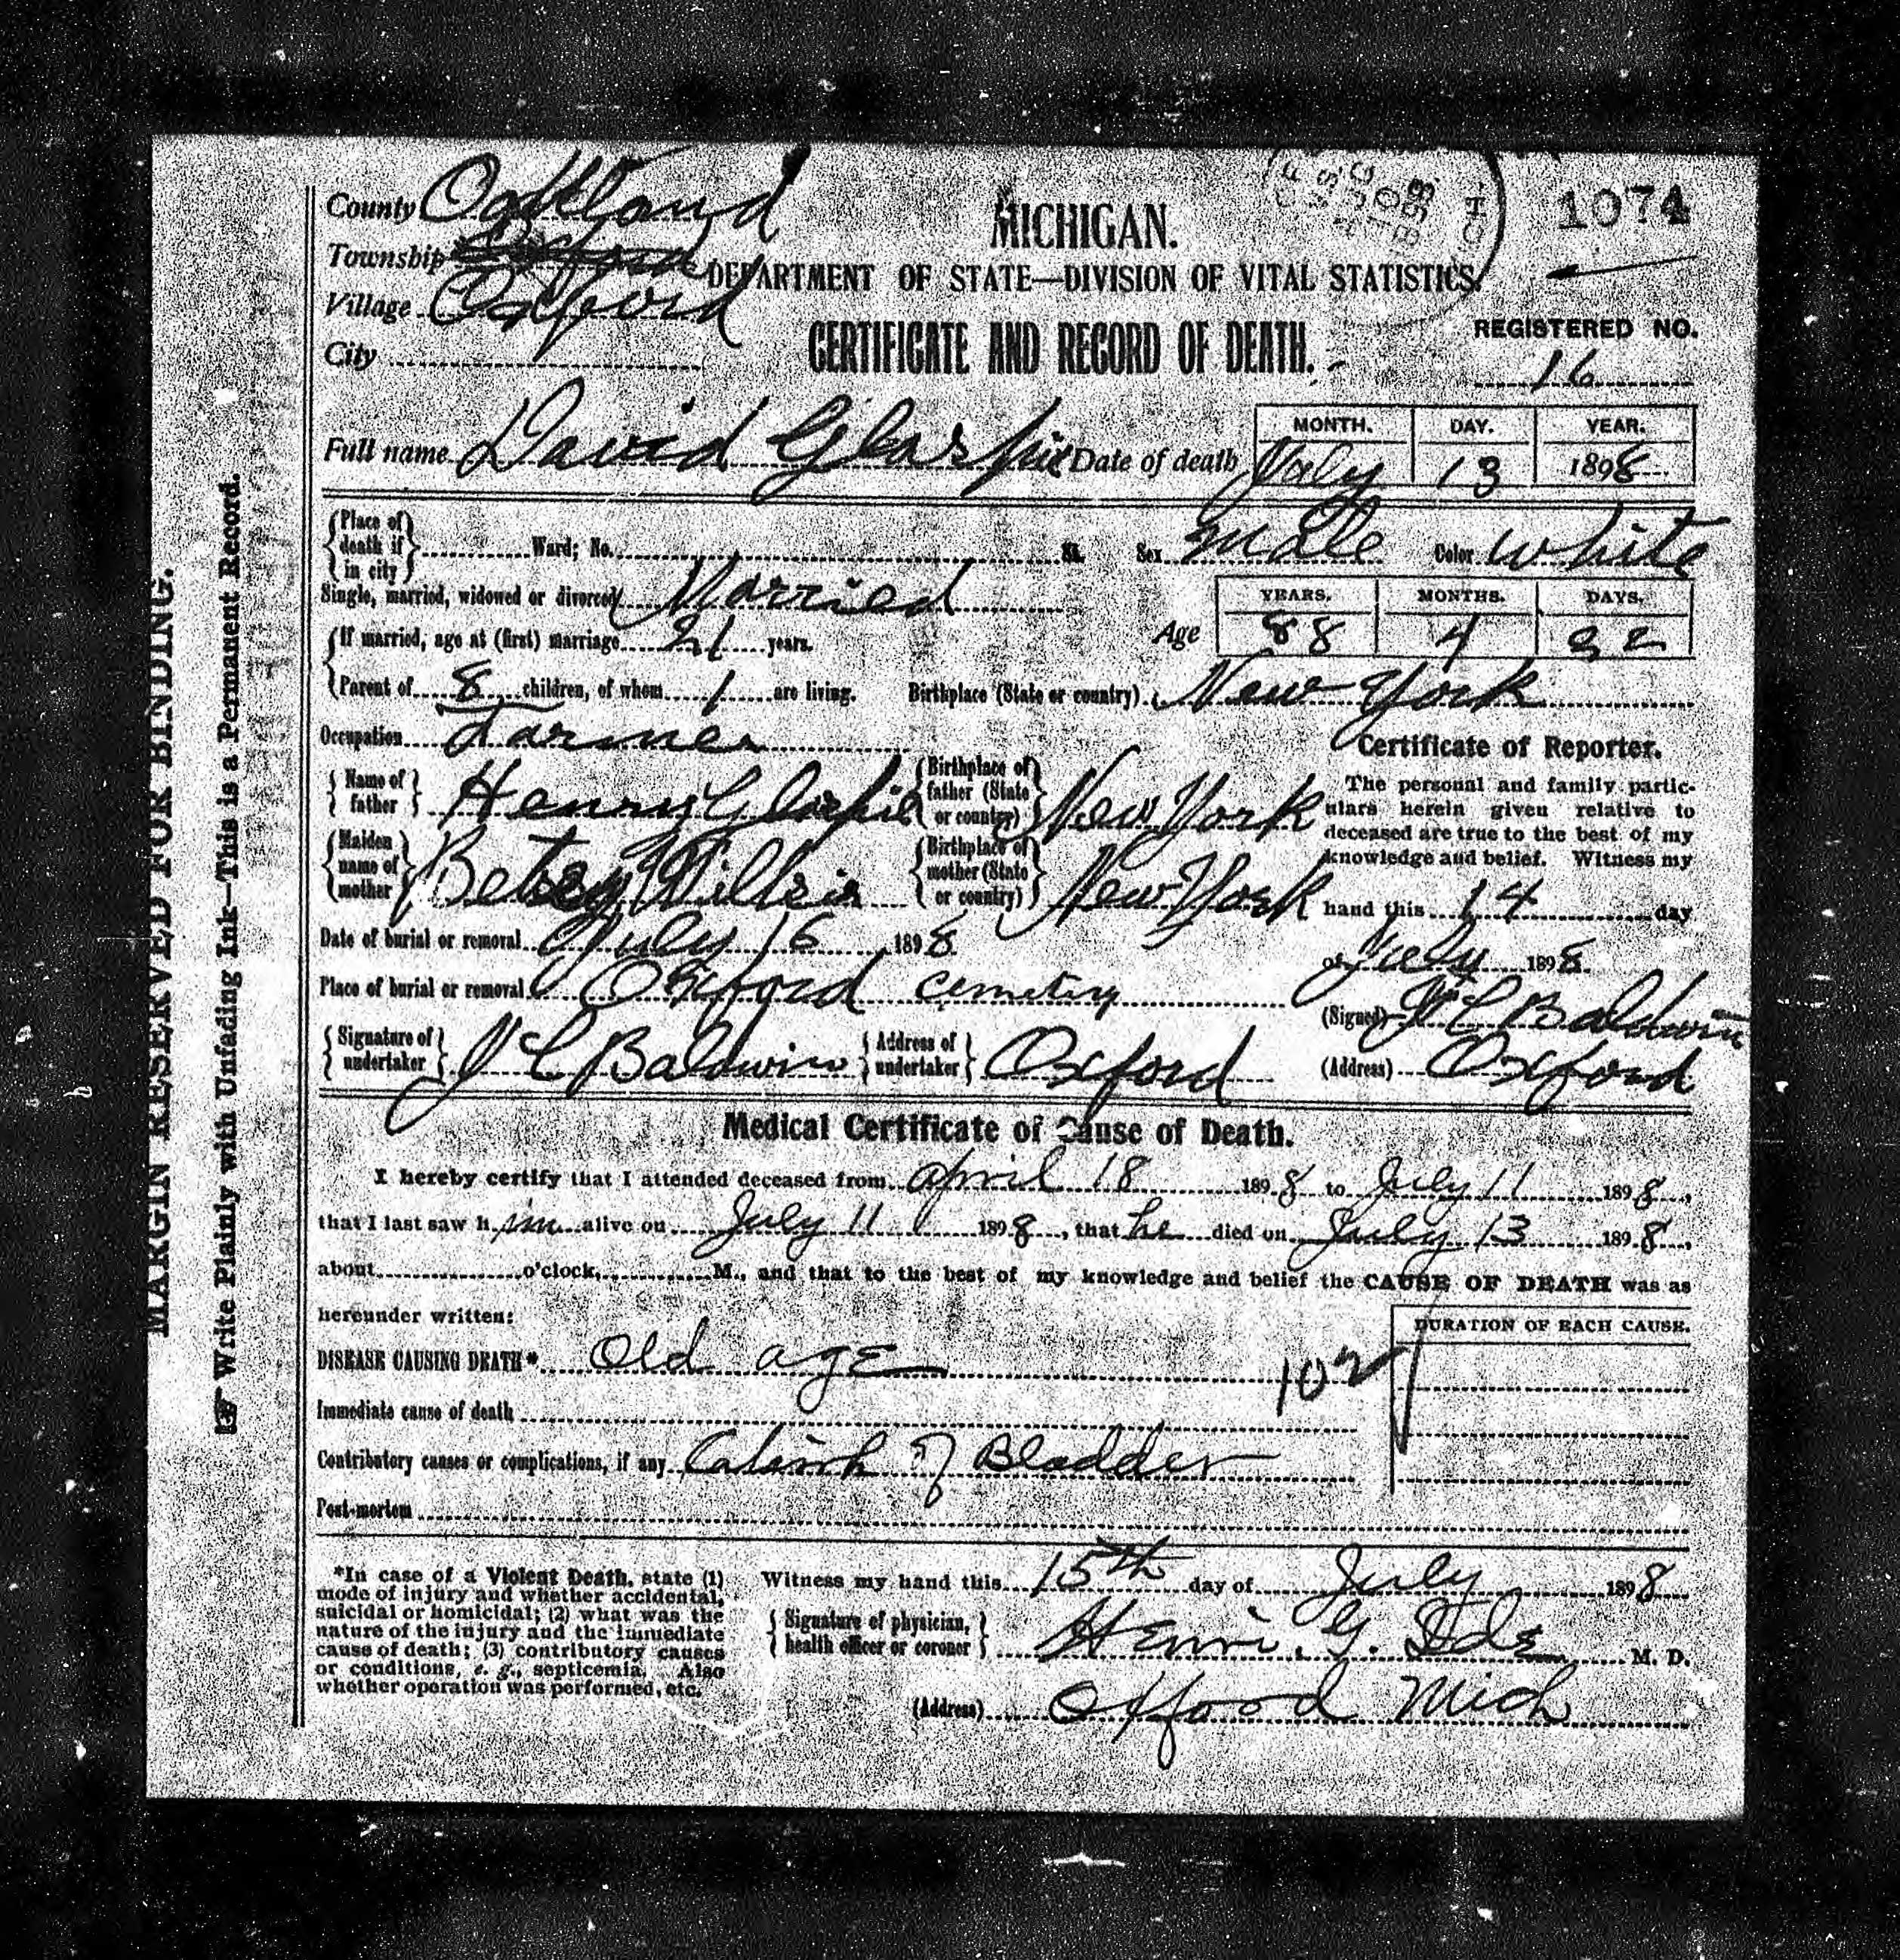 County Oakland
MICHIGAN.
1074
Township Oxford
DEPARTMENT OF STATE—DIVISION OF VITAL STATISTICS.
Village Oxford
CERTIFICATE AND RECORD OF DEATH.
REGISTERED NO.
City
16
MONTH. DAY. YEAR.
Full name David Glaspie Date of death July 13 1898
Place of death if in city Ward; No. St. Sex Male Color White
Single, married, widowed or divorced Married
YEARS. MONTHS. DAYS.
If married, age at (first) marriage 21 years.
Age 88 4 22
Parent of 8 children, of whom 1 are living. Birthplace (State or country) New York
Occupation Farmer
Certificate of Reporter.
Name of father Henry Glaspie Birthplace of father (State or country) New York
Maiden name of mother Betsey Birthplace of mother (State or country) New York
The personal and family partic-
ulars herein given relative to
deceased are true to the best of my
knowledge and belief. Witness my
hand this 14 day
of July 1898
(Signed) C Baldwin
(Address) Oxford
Date of burial or removal July 16 1898
Place of burial or removal Oxford Cemetery
Signature of undertaker C Baldwin Address of undertaker Oxford
Medical Certificate of Cause of Death.
I hereby certify that I attended deceased from April 18 1898 to July 11 1898,
that I last saw him alive on July 11 1898, that he died on July 13 1898,
about o'clock, M., and that to the best of my knowledge and belief the CAUSE OF DEATH was as
hereunder written:
DURATION OF EACH CAUSE.
DISEASE CAUSING DEATH* Old age
102
Immediate cause of death
Contributory causes or complications, if any of Bladder
Post-mortem
*In case of a Violent Death, state (1)
mode of injury and whether accidental,
suicidal or homicidal; (2) what was the
nature of the injury and the immediate
cause of death; (3) contributory causes
or conditions, e. g., septicemia. Also
whether operation was performed, etc.
Witness my hand this 15th day of July 1898
Signature of physician, health officer or coroner Henri. G. Ide M. D.
(Address) Oxford Mich
MARGIN RESERVED FOR BINDING.
Write Plainly with Unfading Ink—This is a Permanent Record.